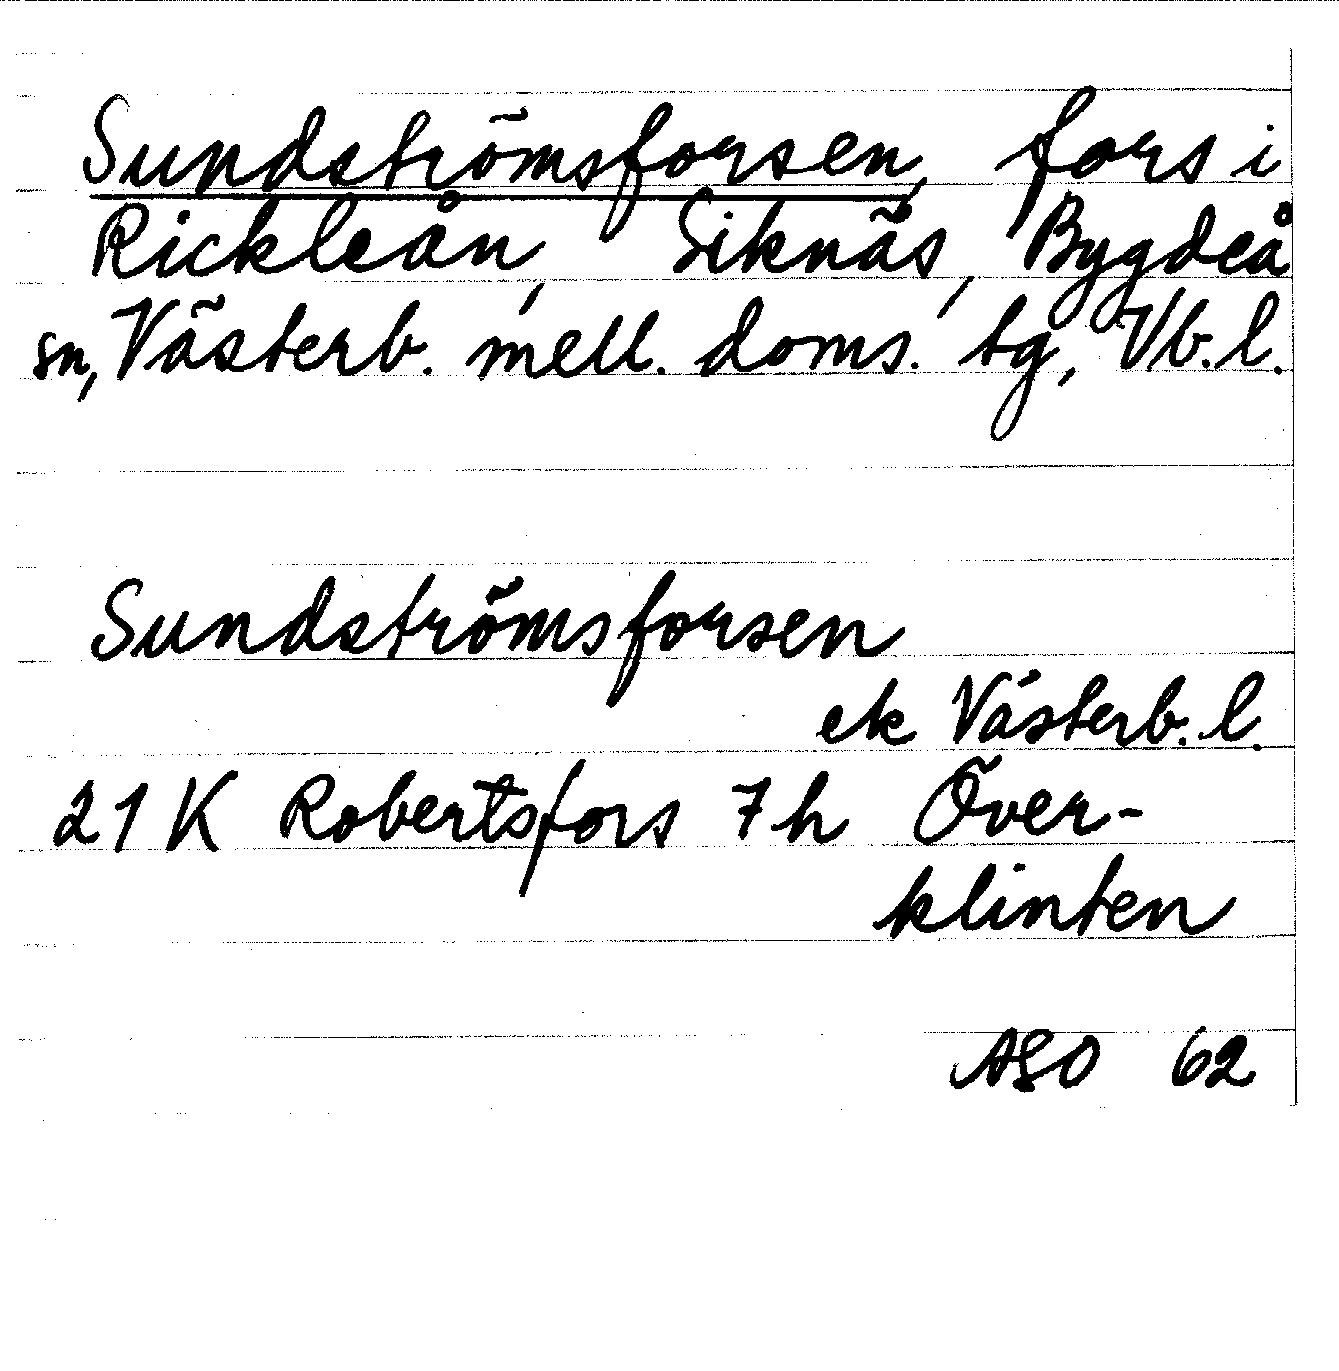 Sundströmsforsen, fors i
Rickleån, Siknäs, Bygdeå
sn, Västerb. mell. doms. tg, Vb. l.
Sundströmsforsen
ek Västerb. l.
21 K Robertsfors 7h Över-
klinten
ASO 62